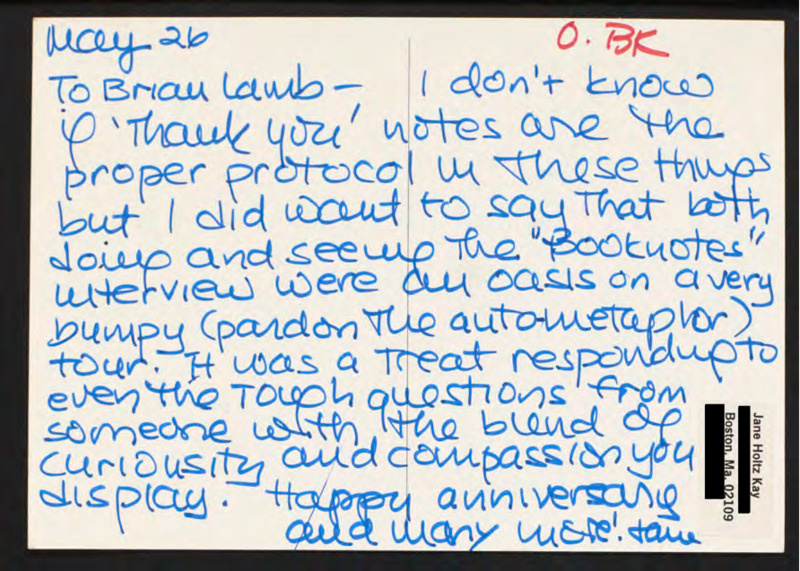 May 26
O. BK
To Brian Lamb – I don't know
if 'Thank you' notes are the
proper protocol in these things
but I did want to say that both
doing and seeing the "Booknotes"
interview were an oasis on a very
bumpy (pardon the auto-metaphor)
tour. It was a treat responding to
even the tough questions from
someone with the blend of
curiousity and compassion you
display. Happy anniversary
and many more! Jane
Jane Holtz Kay
Boston, Ma. 02109